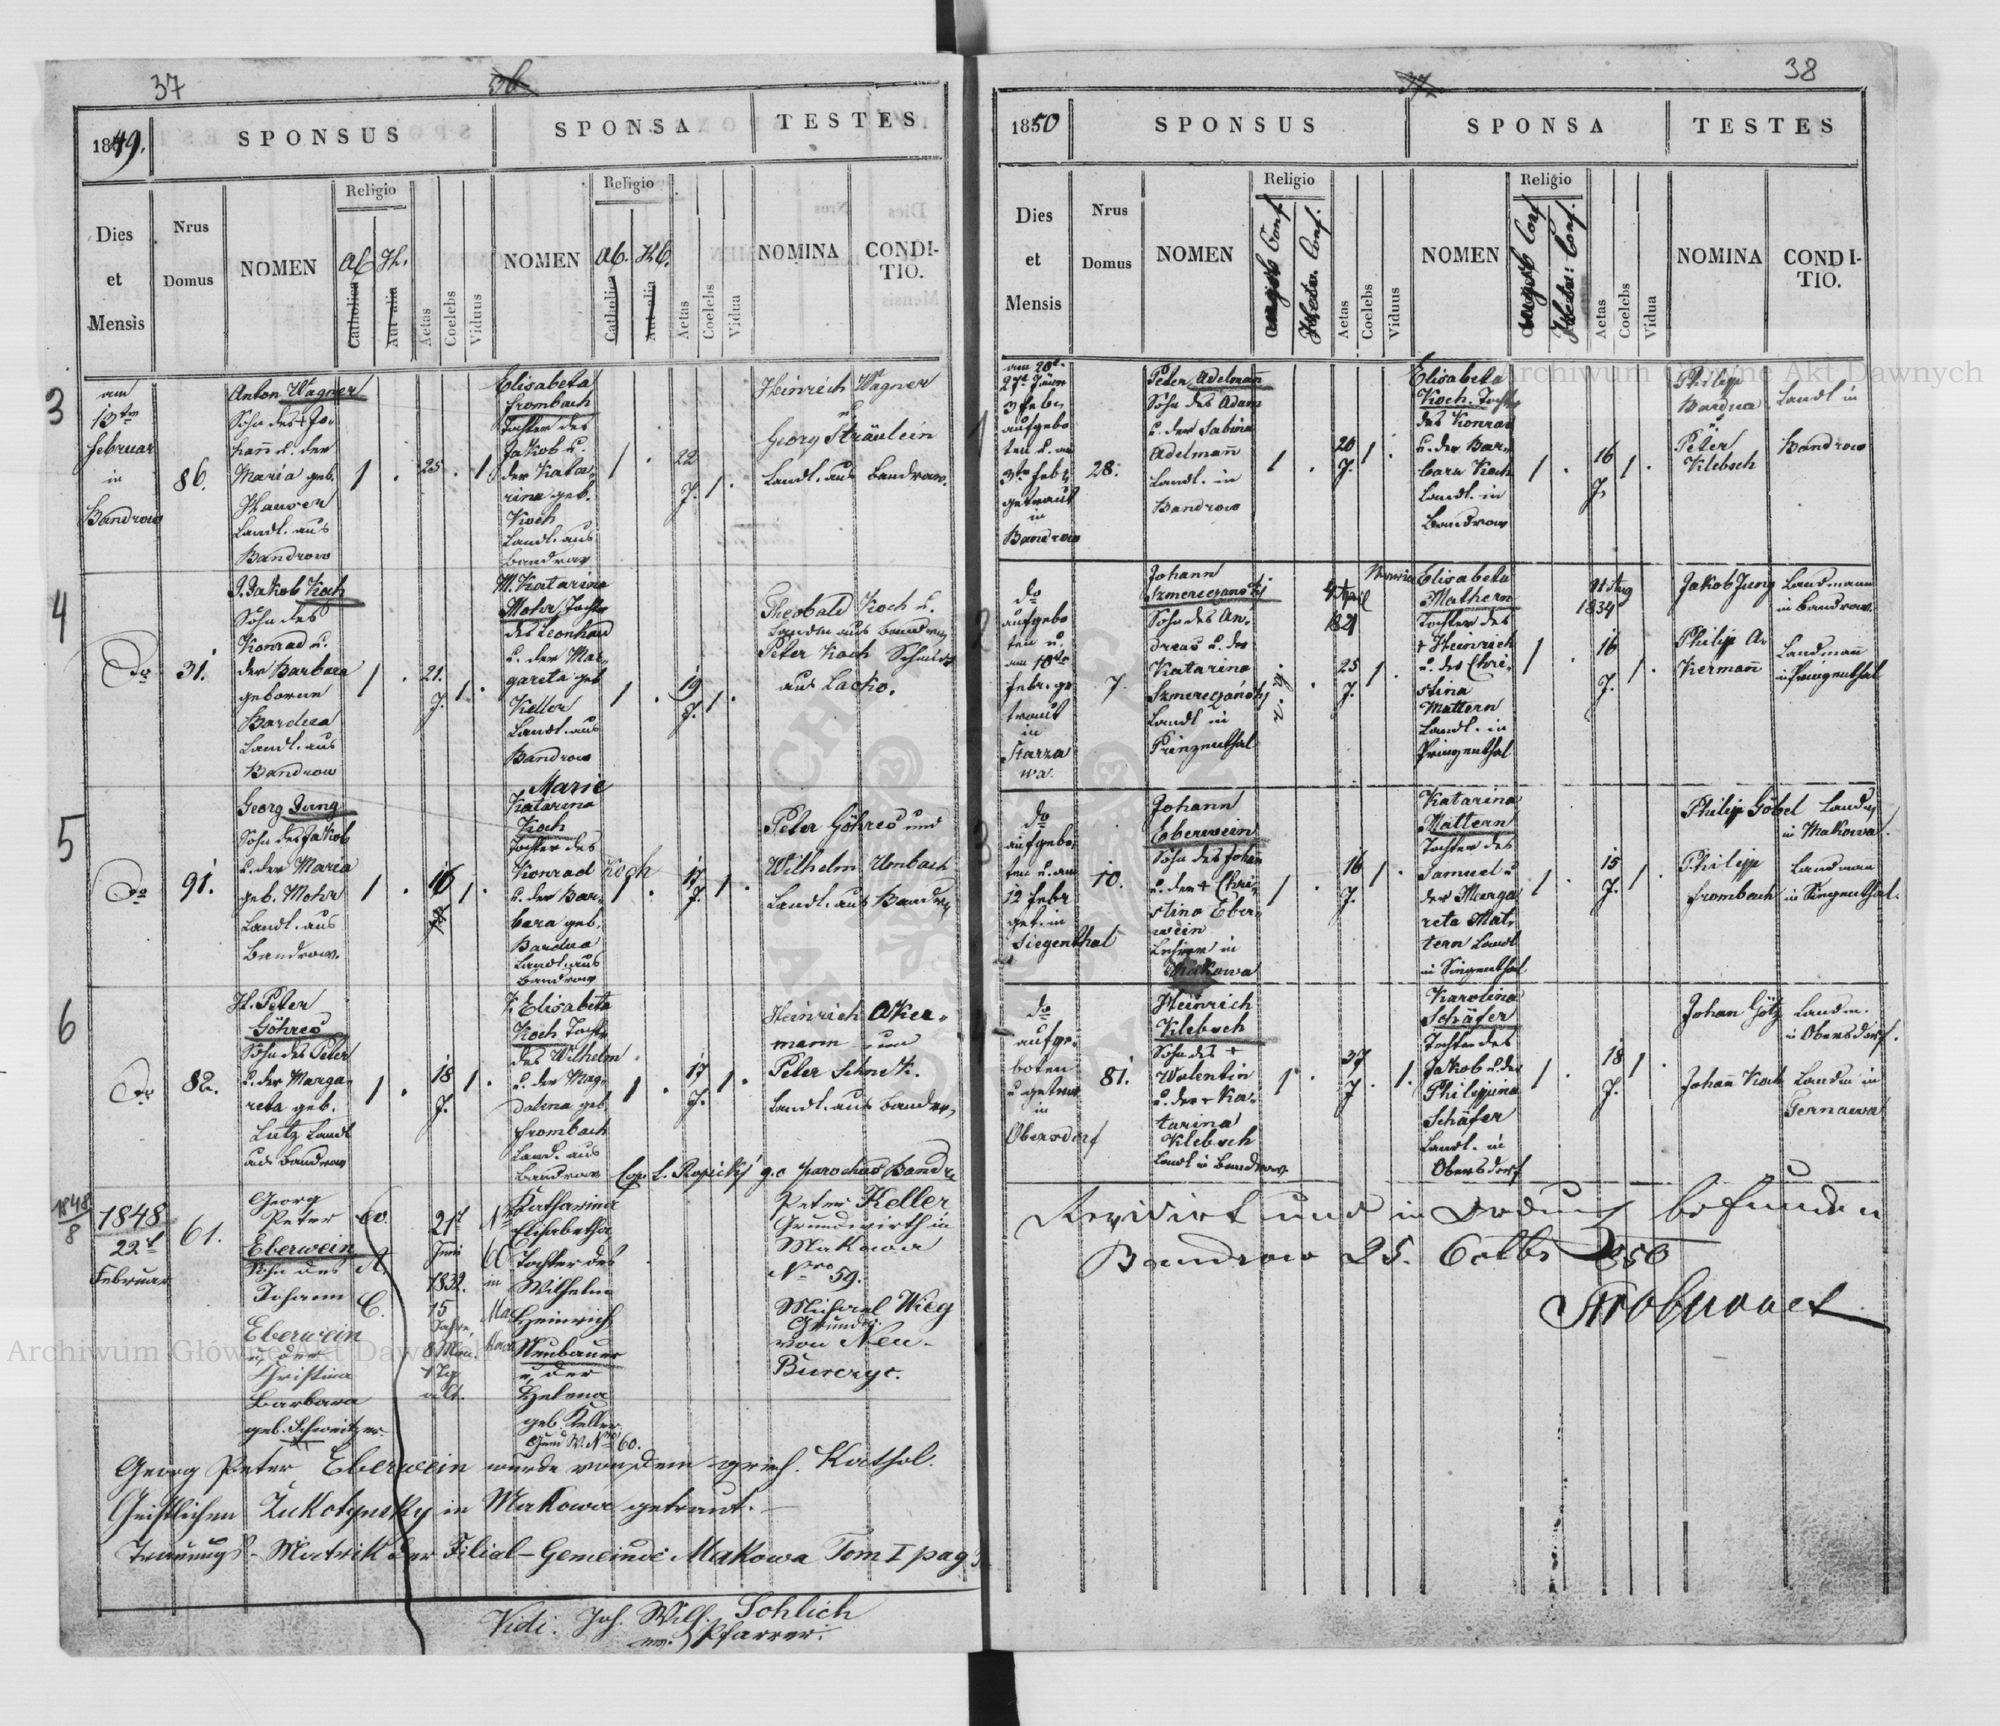 37
36
1849.
SPONSUS
SPONSA
TESTES
Dies
et
Mensis
Nrus
Domus
NOMEN
Religio
AC
HC.
Catholica
Aut alia
Aetas
Coelebs
Viduus
NOMEN
Religio
AC.
HC.
Catholica
Aut alia
Aetas
Coelebs
Vidua
NOMINA
CONDI-
TIO.
3
am
13ten
Februar
in
Bandrow
86.
Anton Wagner
Sohn des + Jo-
hann u. der
Maria geb.
Hauser
Landl. aus
Bandrow
1 . 25. 1
Elisabeta
Frombach
Tochter des
Jakob u.
der Kata-
rina geb.
Koch
Landl. aus
Bandrow
1 . 22
J. 1.
Heinrich Wagner
u.
Georg Sträulein
Landl. aus Bandrow.
4
Do
31.
J. Jakob Koch
Sohn des
Konrad u.
der Barbara
geborne
Bardua
Landl. aus
Bandrow
1 . 21.
J. 1.
M. Katarina
Mohr Tochter
des Leonhard
u. der Mar-
gareta geb
Keller
Landl. aus
Bandrow
1 . 19
J. 1.
Theobald Koch u.
Landm aus Bandrow
Peter Koch Schmidt
aus Lacko.
5
Do
91.
Georg Jung
Sohn des Jakob
u. der Maria
geb. Mohr
Landl. aus
Bandrow.
1 . 16 1.
Marie
Katarina
Koch
Tochter des
Konrad Koch
u. der Bar-
bara geb.
Bardua
Landl. aus
Bandrow
1 . 17
J. 1.
Peter Göhres und
Wilhelm Umbach
Landl. aus Bandr
6
Do
82.
H. Peter
Göhres
Sohn des Peter
u. der Marga-
reta geb.
Lutz Landl
aus Bandrow
1 . 18
J. 1.
K. Elisabeta
Koch Tocht
des Wilhelm
u. der Mag-
dalena geb.
Frombach
Landl. aus
Bandrow
1 . 17
J. 1.
Heinrich Aker-
mann und
Peter Schnek.
Landl. aus Bandrow
Cop. L. Ropicky g.c parochus Bandr
1848
8
1848
22t
Februar
61.
Georg
Peter
Eberwein
Sohn des
Johann
Eberwein
u. der
Christina
Barbara
geb. Schweitzer
Ev.
A.
C.
21t
Juni
1832.
15
Jahre,
8 Mon.
1 Tg
alt.
Nr
60
in
Ma
kowa
Katharina
Elisabetha
Tochter des
Wilhelm
Heinrich
Neubauer
u. der
Helena
geb. Keller
Grund W. Nro 60.
Peter Keller
Grundwirth in
Makowa
Nro 59.
Michael Wieg
Grundw.
von Neu-
Burczyc.
Georg Peter Eberwein wurde von dem griech. Kathol.
Geistlichen Zukotynsky in Makowa getraut.
Trauungs-Matrik der Filial-Gemeinde Makowa Tom I pag
Vidi: Joh. Wilh. Gohlich
ev. Pfarrer.
38
37
1850
SPONSUS
SPONSA
TESTES
Dies
et
Mensis
Nrus
Domus
NOMEN
Religio
Augsb Conf
Helv. Conf.
Aetas
Coelebs
Viduus
NOMEN
Religio
Augsb Conf
Helv: Conf.
Aetas
Coelebs
Vidua
NOMINA
CONDI-
TIO.
1
am 20t
27t Jänn
3 Feb
aufgebo
ten u. am
3ten Feb
getraut
in
Bandrow
28.
Peter Adelmañ
Sohn des Adam
u. der Sabina
Adelmañ
Landl. in
Bandrow
1 . 20
J. 1.
Elisabeta
Koch. Tocht
des Konrad
u. der Bar-
bara Koch
Landl. in
Bandrow
1 . 16
J. 1.
Philipp
Bardua
u
Peter
Klebsch
Landl in
Bandrow
2
do
aufgebo
ten u.
am 10ten
Febr. ge
traut
in
Starza
wa.
7.
Johann
Szmereczanskij
Sohn des An-
dreas u. der
Katarina
Szmereczánskij
Landl in
Prinzenthal
April
25
J. 1.
Elisabeta
Mathern
Tochter des
+ Heinrich
u. der Chri-
stina
Mattern
Landl. in
Prinzenthal
Aug
1834
1 . 16
J. 1.
Jakob Jung
Landmann
in Bandrow
Philip Ac
Kermañ
Landmañ
in Prinzenthal
3
do
aufgebo-
ten u. am
12 Febr
get. in
Siegenthal
10.
Johann
Eberwein
Sohn des Johan
u. der + Chri-
stina Eber-
wein
Lehrer in
Makowa
1 . 16
J. 1.
Katarina
Mattern
Tochter des
Samuel u
der Marga
reta Mat-
tern Landl
in Singenthal
1 . 15
J. 1.
Philip Göbel
Landm
in Makowa.
Philipp
Frombach
Landman
in Singenthal.
4
do
aufge-
boten
u getraut
in
Obersdorf
81.
Heinrich
Klebsch
Sohn des +
Valentin
u. der + Ka-
tarina
Klebsch
Landl in Bandrow
1 . 37
J. 1.
Karolina
Schäfer
Tochter des
Jakob u. der
Philippina
Schäfer
Landl. in
Obersdorf
1 . 18
J. 1.
Johan Götz
Landm.
in Obersdorf.
Johañ Koch
Landm in
Revidirt und in Ordnung befunden
Bandrow 25. Octbr 1850